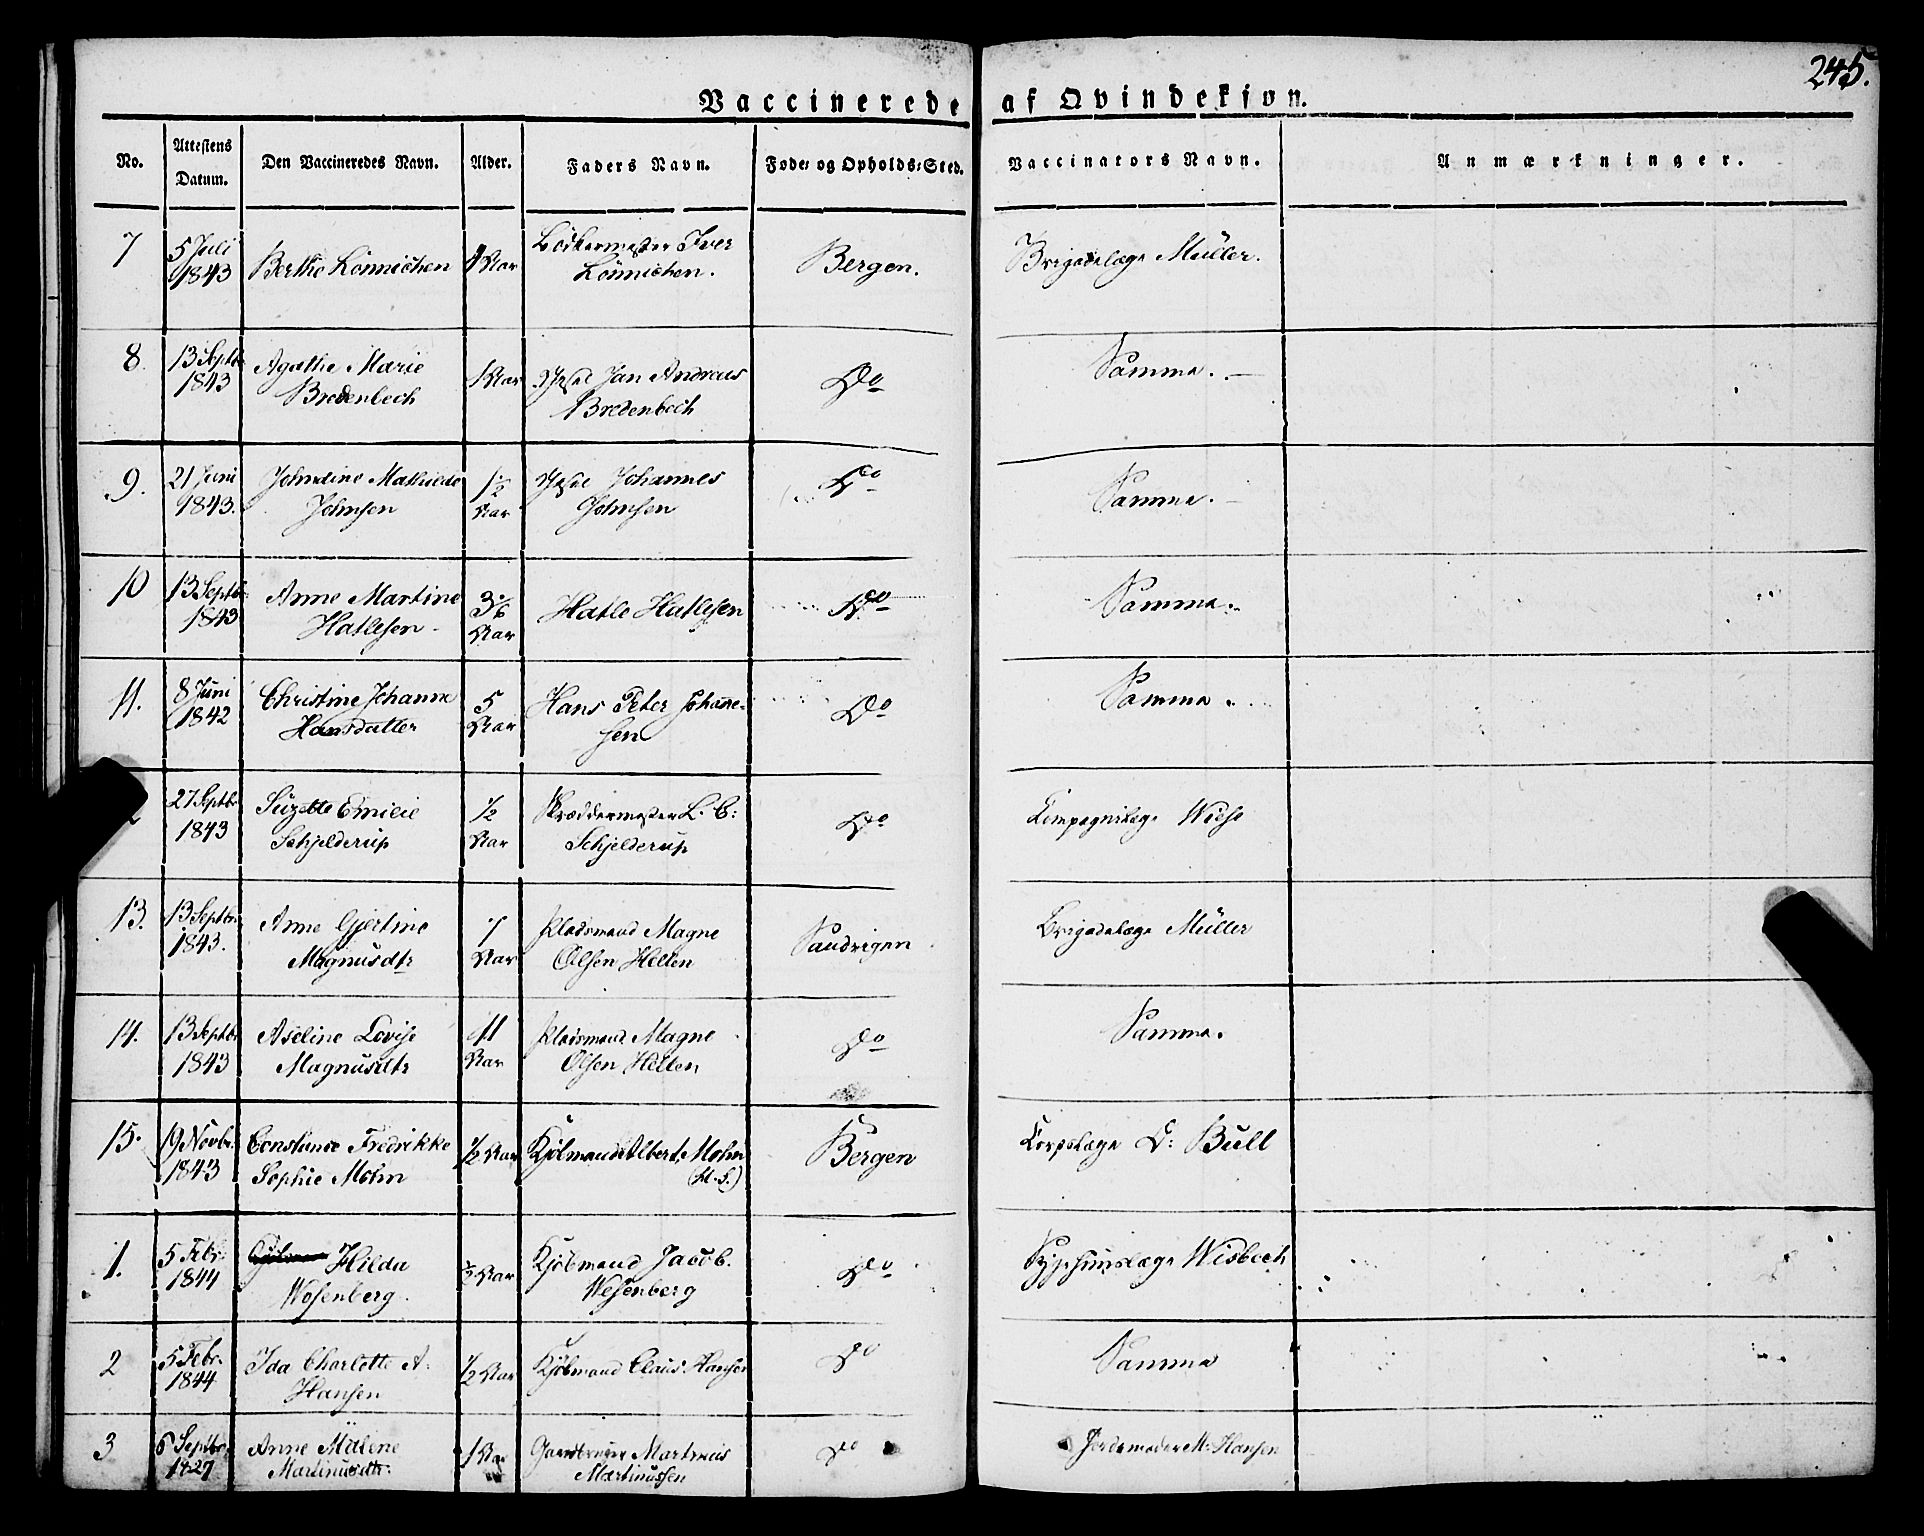 245.
Vaccinerede af Qvindekjøn.
No.
Attestens Datum.
Den Vaccineredes Navn.
Alder.
Faders Navn.
Føde- og Opholds-Sted.
Vaccinators Navn.
Anmærkninger.
7
5 Juli
1843
Berthe Lönnichen
1 Aar
Bödkermester Iver
Lönnichen.
Bergen.
Brigadelæge Müller.
8.
13 Septbr
1843
Agathe Marie
Bredenbech
1 Aar
Jan Andreas
Bredenbech
Do
Samme.
9.
21 Juni
1843.
Johndine Mathilde
Johnsen
1½
Aar
Johannes
Johnsen
Do
Samme.
10
13 Septbr.
1843
Anne Martine
Hatlesen
3/6
Aar
Hatle Hatlesen
Do
Samme.
11.
8 Juni
1842
Christine Johanne
Hansdatter
5
Aar
Hans Peter Johanne-
sen
Do
Samme.
27 Septbr
1843
Suzette Emilie
Schjelderup
½
Aar
Skræddermester L. C:
Schjelderup
Do
Kompagnilæge Wiese
13.
13 Septbr
1843.
Anne Gjertine
Magnusdtr
7
Aar
Pladsmand Magne
Olsen Helten
Sandvigen
Brigadelæge Müller
14.
13 Septbr
1843
Aseline Lovise
Magnusdtr
11
Aar
Pladsmand Magne
Olsen Helten
Do
Samme.
15.
19 Novbr.
1843
Constance Fredrikke
Sophie Mohn
½ Aar
Kjöbmand Albert Mohn
Bergen
Korpslæge D: Bull
1.
5 Febr.
1844
Hilda
Wesenberg.
½ Aar
Kjöbmand Jacob.
Wesenberg
Do
Wisbech
2
5 Febr.
1844
Ida Charlotte A.
Hansen
½ Aar
Kjöbmand Claus Hansen
Do
Samme
3
6 Septbr.
1827
Anne Malene
Martinusdtr.
1 Aar
Gaardbruger Martinus
Martinussen
Do
Jordemoder M. Hansen